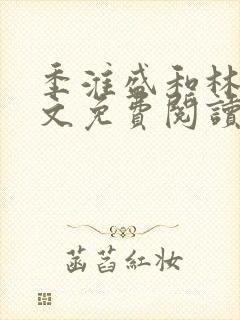 季淮盛和林
文免費閱讀
菡萏紅妝